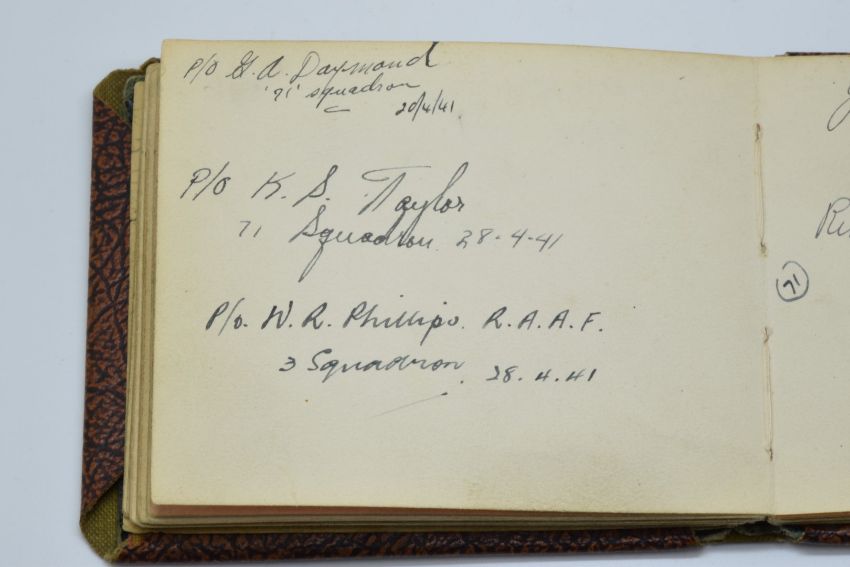 P/O G. A. Daymond
'71' Squadron
20/4/41.
P/O K. S. Taylor
71 Squadron. 28-4-41
P/o. W. R. Phillips. R. A. A. F.
3 Squadron. 28. 4. 41
71